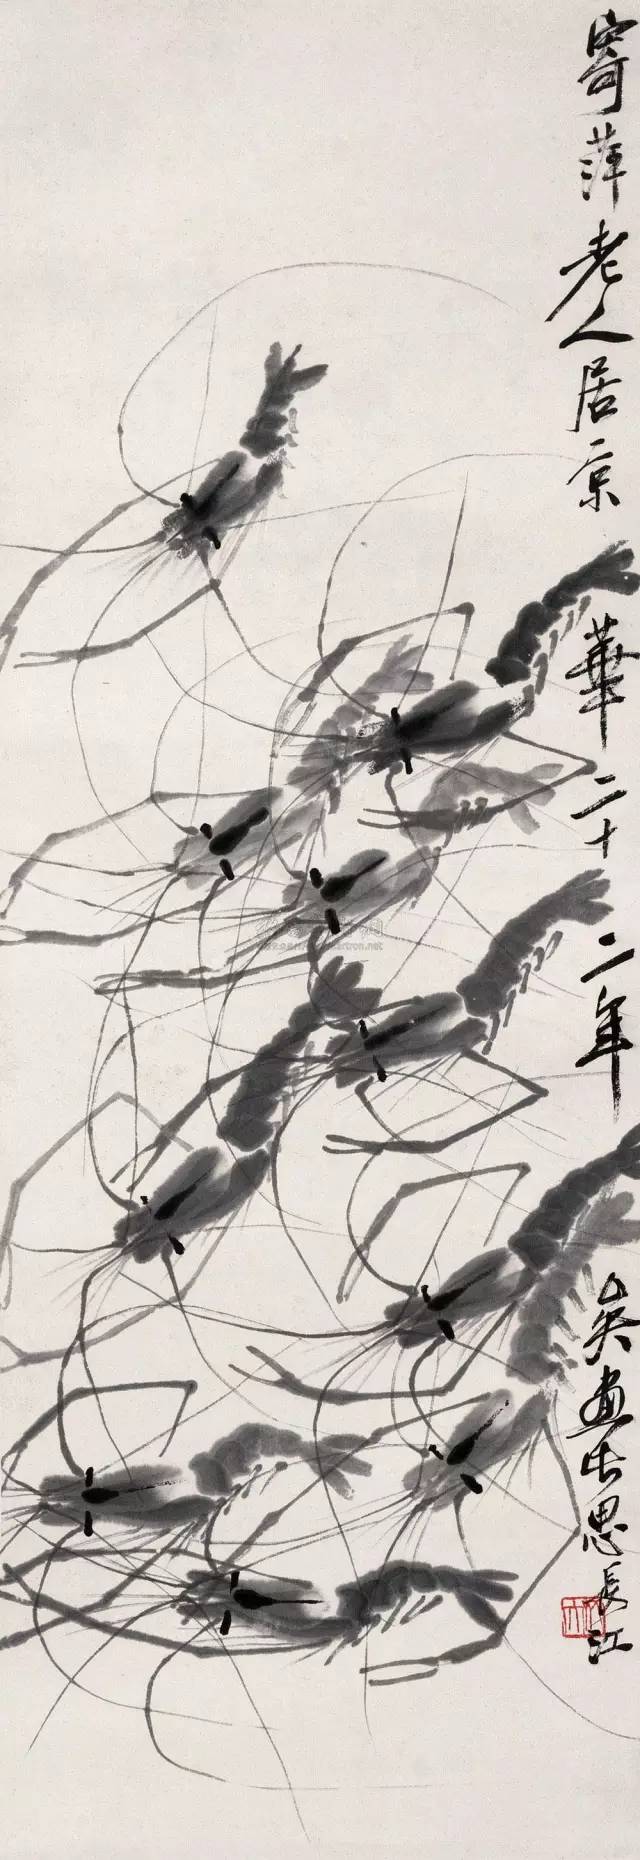 寄萍老人居京華二十二年矣畫此思長江
artron.net